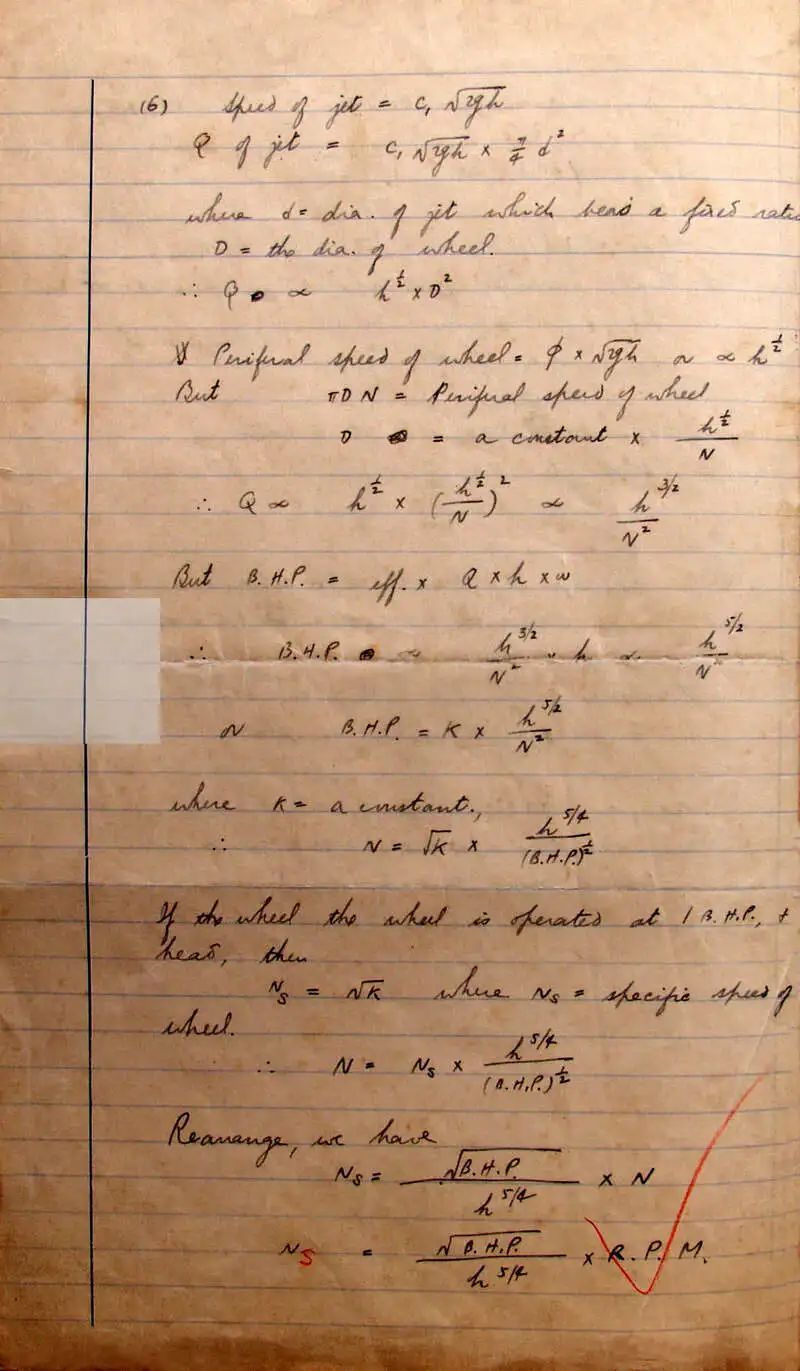 (6) speed of jet = c, √2gh
Q of jet = c, √2gh × π/4 d²
where d = dia. of jet which bears a fixed ratio
D = the dia. of wheel.
∴ Q ∝ h^½ × D²
Periferal speed of wheel = φ × √2gh or ∝ h^½
But πDN = Periferal speed of wheel
D = a constant × h^½/N
∴ Q ∝ h^½ × (h^½/N)² ∝ h^3/2/N²
But B.H.P. = eff. × Q × h × w
∴ B.H.P. ∝ h^3/2/N² × h ∝ h^5/2/N²
or B.H.P. = K × h^5/2/N²
where K = a constant.,
∴ N = √K × h^5/4/(B.H.P.)^½
If the wheel the wheel is operated at 1 B.H.P., +
head, then
Ns = √K where Ns = specific speed of
wheel.
∴ N = Ns × h^5/4/(B.H.P.)^½
Rearange, we have
Ns = √B.H.P./h^5/4 × N
Ns = √B.H.P./h^5/4 × R.P.M.